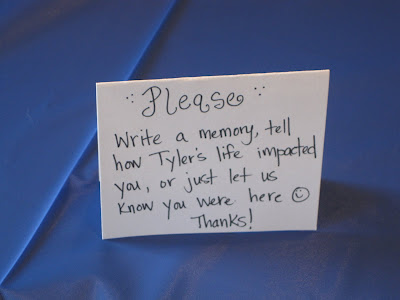 Please
Write a memory, tell
how Tyler's life impacted
you, or just let us
know you were here ☺
Thanks!